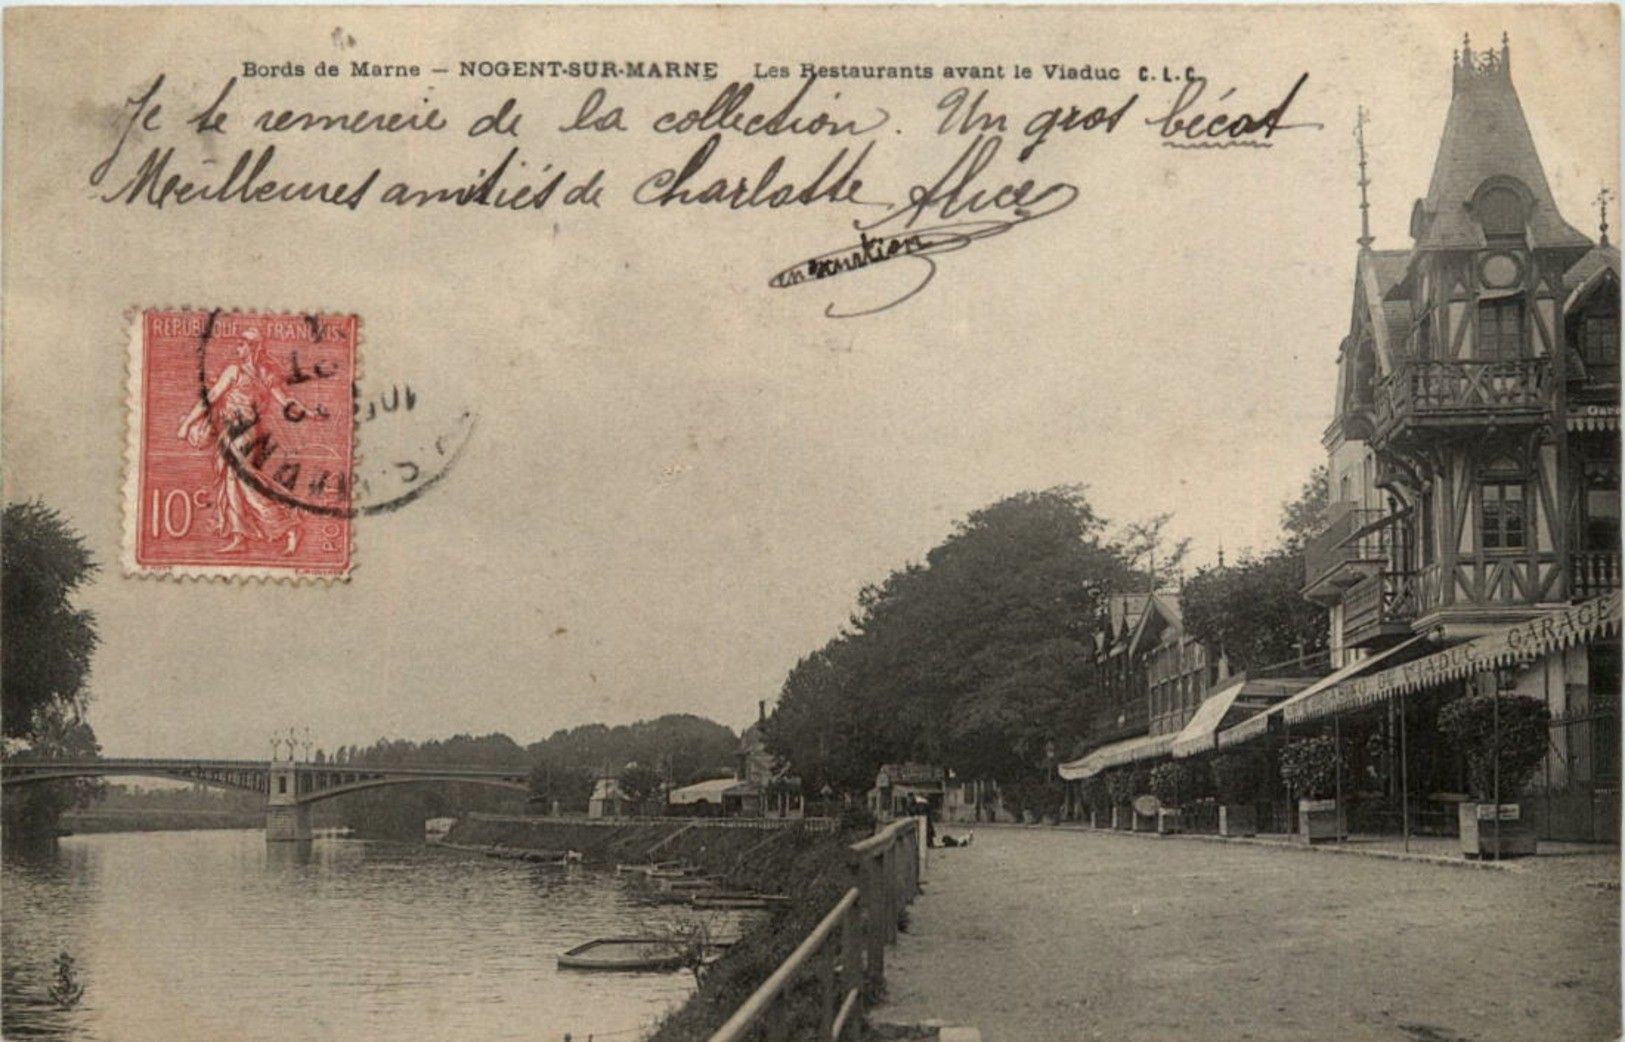 Bords de Marne – NOGENT-SUR-MARNE Les Restaurants avant le Viaduc C.L.C.
Je te remercie de la collection. Un gros bécot
Meilleures amitiés de Charlotte Alice
REPUBLIQUE FRANÇAISE
10c
GARAGE
DU VIADUC